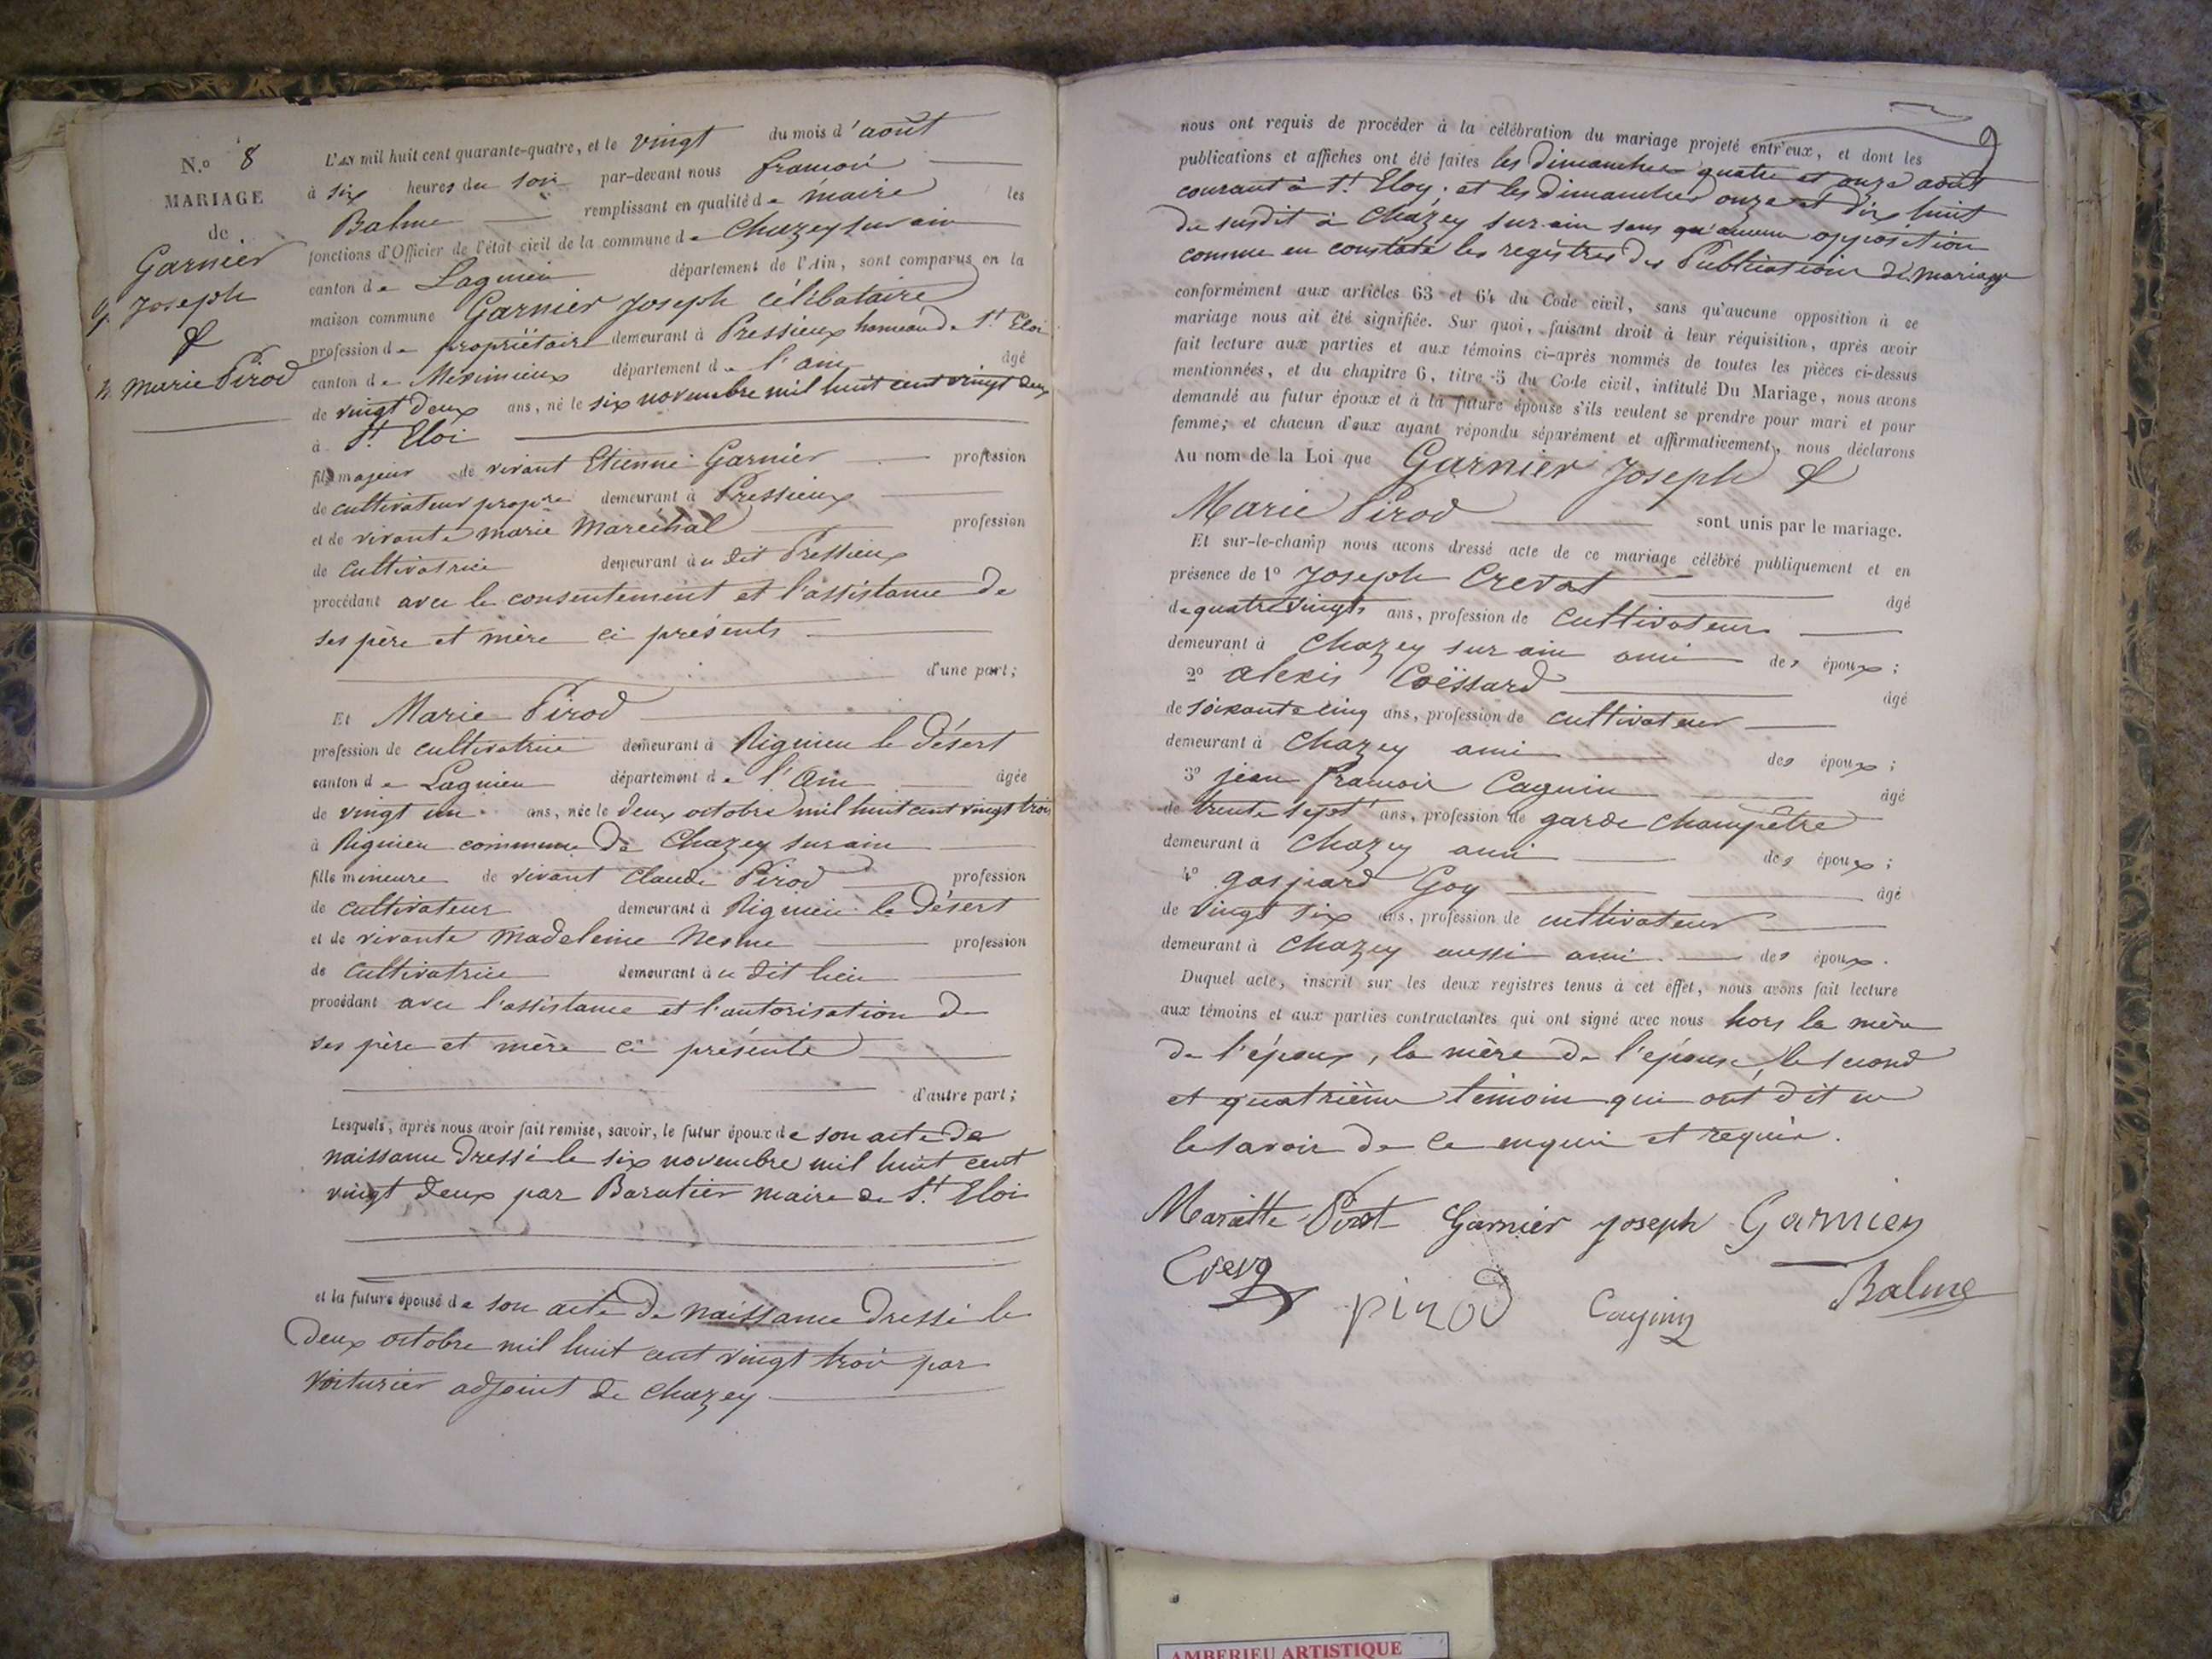 N.o 8
MARIAGE
de
Garnier
g. Joseph
&
h. Marie Pirod
L'AN mil huit cent quarante-quatre, et le vingt du mois d'août
à six heures du soir par-devant nous françois
Balme remplissant en qualité de maire les
fonctions d'Officier de l'état civil de la commune de Chazey sur ain
canton de Lagnieu département de l'Ain, sont comparus en la
maison commune Garnier Joseph célibataire
profession de propriétaire demeurant à Pressieux hameau de St Eloi
canton de Meximieux département de l'ain âgé
de vingt deux ans, né le six novembre mil huit cent vingt deux
à St Eloi
fils majeur de vivant Etienne Garnier profession
de cultivateur propre demeurant à Pressieux
et de vivante marie Maréchal profession
de cultivatrice demeurant à u dit Pressieux
procédant avec le consentement et l'assistance de
ses père et mère ci présents
d'une part;
Et Marie Pirod
profession de cultivatrice demeurant à Rignieu le désert
canton de Lagnieu département de l'Ain âgée
de vingt un ans, née le deux octobre mil huit cent vingt trois
à Rignieu commune de Chazey sur ain
fille mineure de vivant Claude Pirod profession
de cultivateur demeurant à Rignieu le Désert
et de vivante Madeleine Nesme profession
de cultivatrice demeurant à u dit lieu
procédant avec l'assistance et l'autorisation de
ses père et mère ci présents
d'autre part;
Lesquels, après nous avoir fait remise, savoir, le futur époux de son acte de
naissance dressé le six novembre mil huit cent
vingt deux par Baratier maire de St Eloi
et la future épouse de son acte de naissance dressé le
deux octobre mil huit cent vingt trois par
Voiturier adjoint de Chazey
9
nous ont requis de procéder à la célébration du mariage projeté entr'eux, et dont les
publications et affiches ont été faites les dimanches quatre et onze août
courant à St Eloy. et les dimanches onze et dix huit
du susdit à Chazey sur ain sans qu'aucune opposition
comme en constate les registres des Publications de mariage
conformément aux articles 63 et 64 du Code civil, sans qu'aucune opposition à ce
mariage nous ait été signifiée. Sur quoi, faisant droit à leur réquisition, après avoir
fait lecture aux parties et aux témoins ci-après nommés de toutes les pièces ci-dessus
mentionnées, et du chapitre 6, titre 5 du Code civil, intitulé Du Mariage, nous avons
demandé au futur époux et à la future épouse s'ils veulent se prendre pour mari et pour
femme; et chacun d'eux ayant répondu séparément et affirmativement, nous déclarons
Au nom de la Loi que Garnier Joseph &
Marie Pirod sont unis par le mariage.
Et sur-le-champ nous avons dressé acte de ce mariage célébré publiquement et en
présence de 1o Joseph Crevat âgé
de quatrevingts ans, profession de cultivateur
demeurant à Chazey sur ain ami des époux;
2o alexis Coëssard âgé
de soixante cinq ans, profession de cultivateur
demeurant à Chazey ami des époux;
3o jean françois Caguin âgé
de trente sept ans, profession de garde champêtre
demeurant à Chazey ami des époux;
4o gaspard Goy âgé
de vingt six ans, profession de cultivateur
demeurant à Chazey aussi ami des époux.
Duquel acte, inscrit sur les deux registres tenus à cet effet, nous avons fait lecture
aux témoins et aux parties contractantes qui ont signé avec nous hors la mère
de l'époux, la mère de l'épouse, le second
et quatrième témoin qui ont dit ne
le savoir de ce enquis et requis.
Mariette Pirot Garnier joseph Garnier
Pirod Balme
AMBERIEU ARTISTIQUE